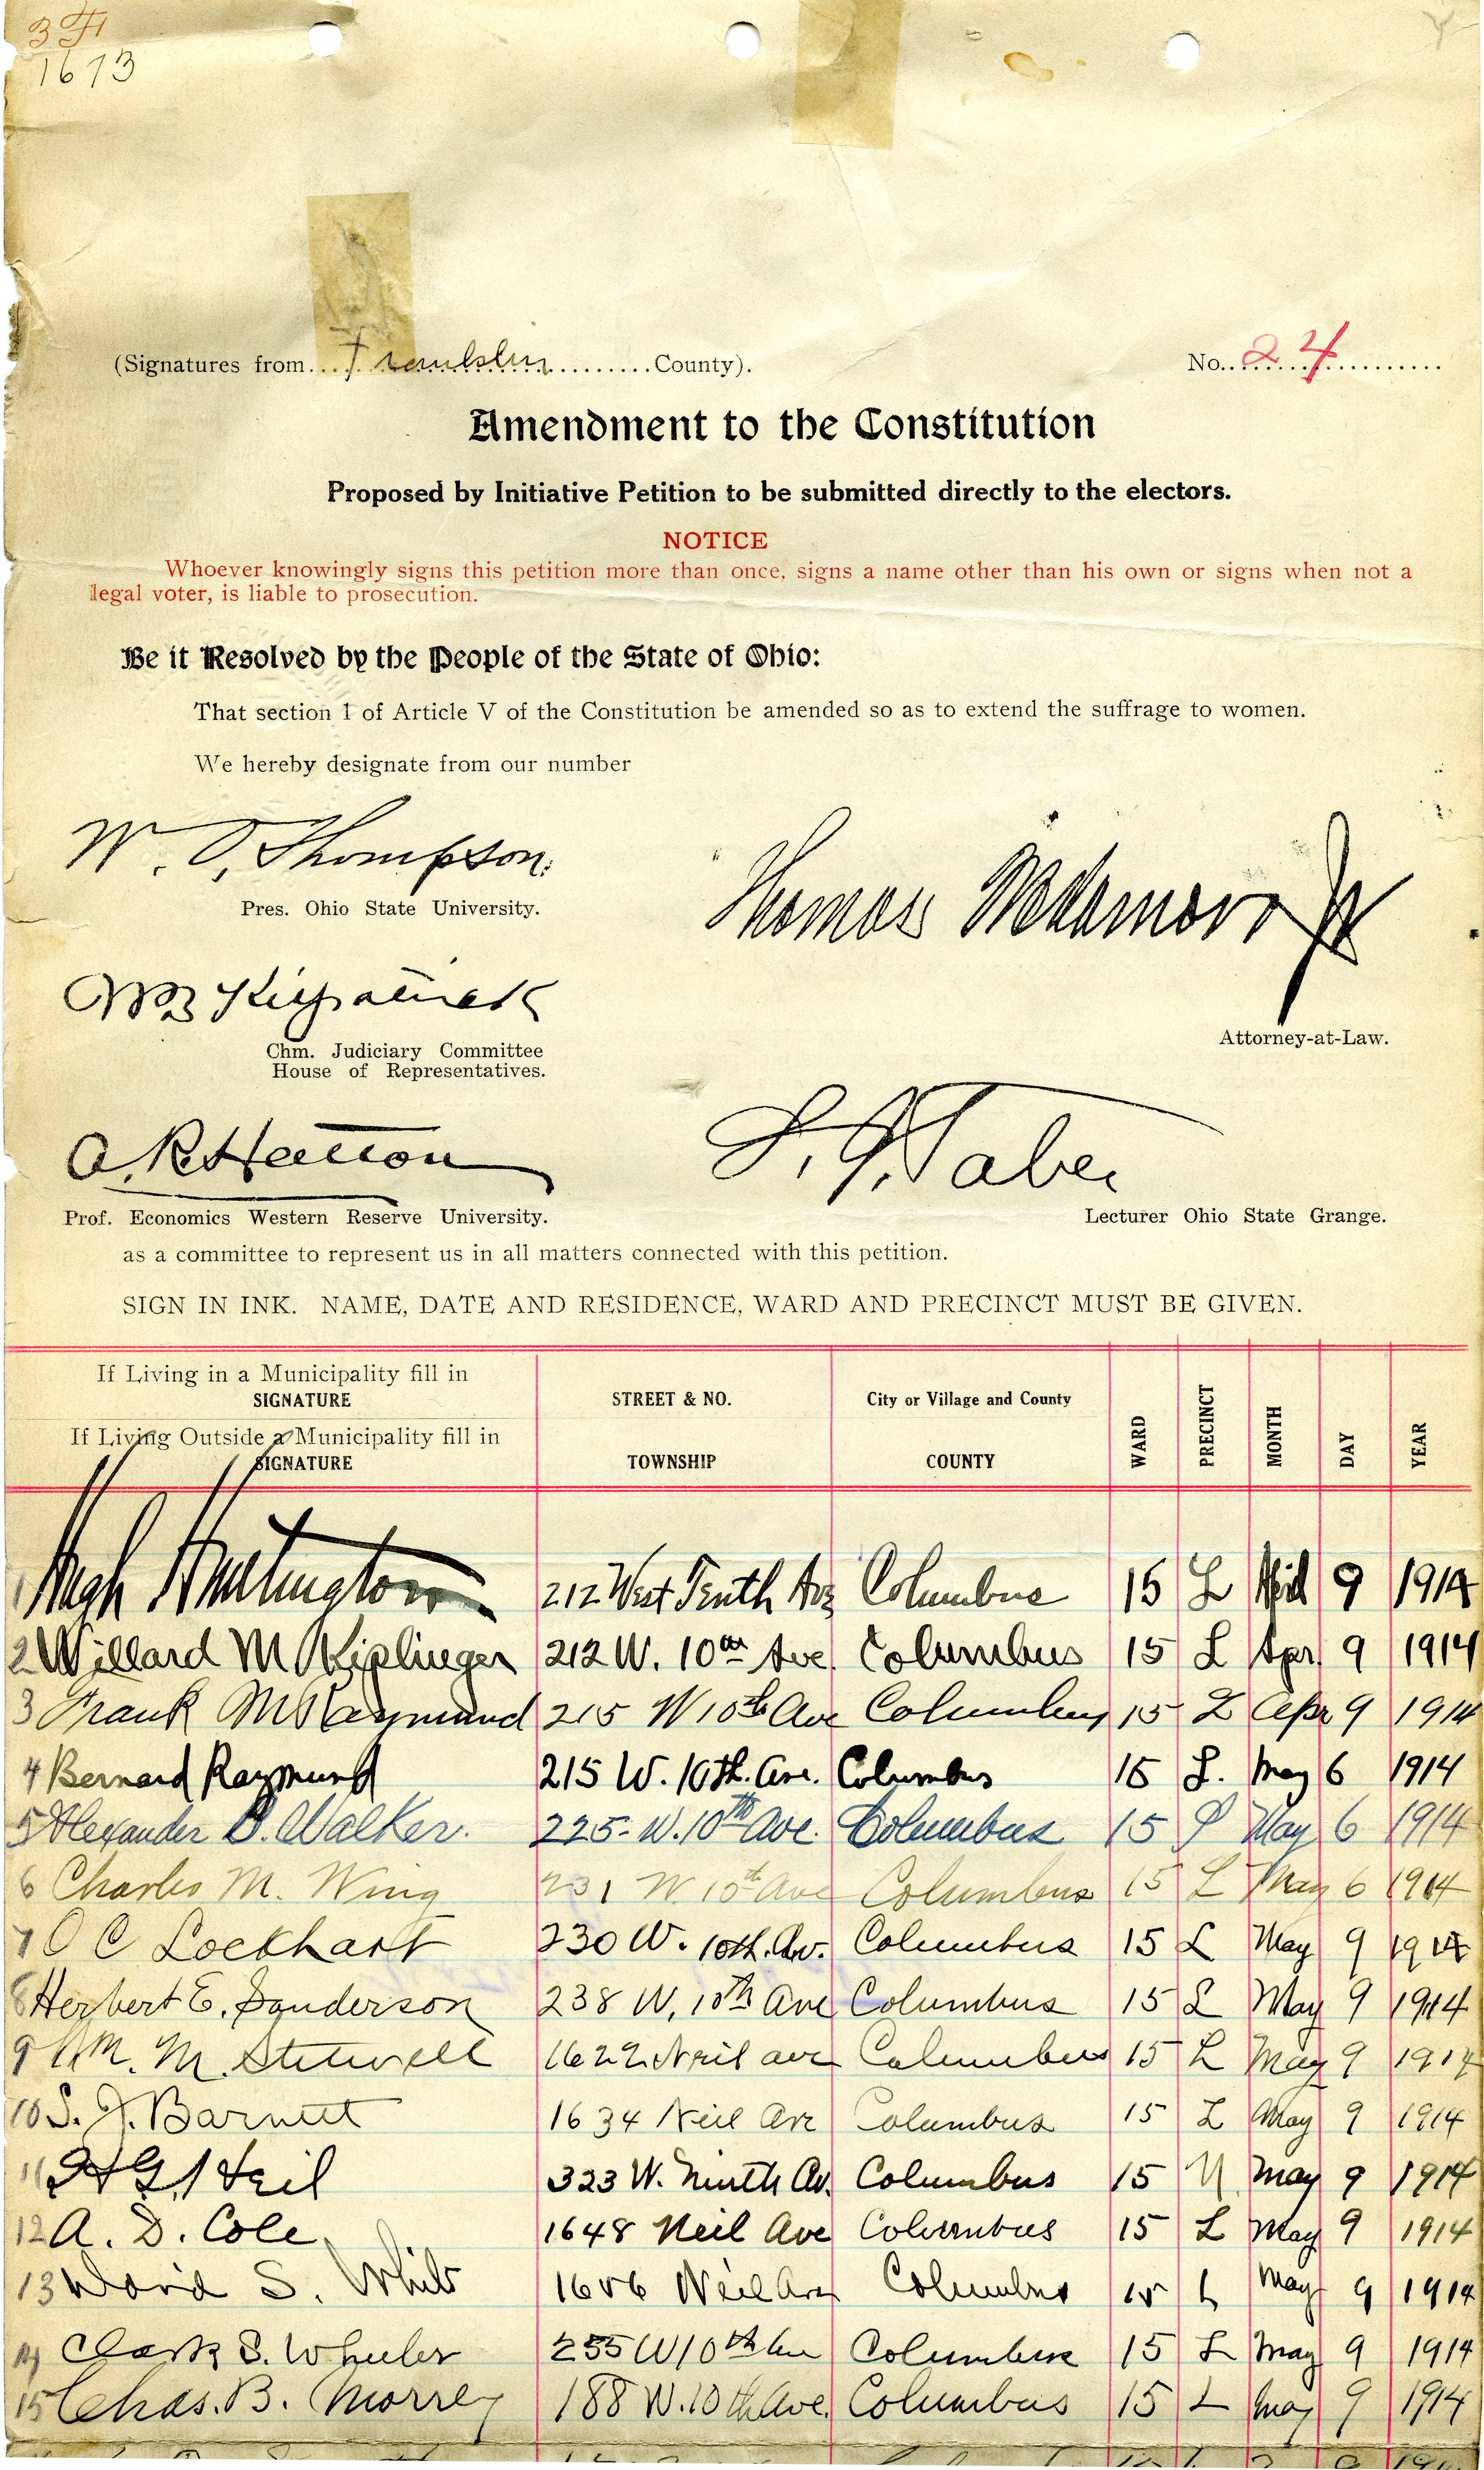 1673
(Signatures from....Franklin..........County).
No..24..........
Amendment to the Constitution
Proposed by Initiative Petition to be submitted directly to the electors.
NOTICE
Whoever knowingly signs this petition more than once, signs a name other than his own or signs when not a
legal voter, is liable to prosecution.
Be it Resolved by the People of the State of Ohio:
That section 1 of Article V of the Constitution be amended so as to extend the suffrage to women.
We hereby designate from our number
W. O. Thompson.
Pres. Ohio State University.
Thomas
Attorney-at-Law.
WB Kirkpatrick
Chm. Judiciary Committee
House of Representatives.
A. R. Hatton
Prof. Economics Western Reserve University.
L. J. Taber
Lecturer Ohio State Grange.
as a committee to represent us in all matters connected with this petition.
SIGN IN INK. NAME, DATE AND RESIDENCE, WARD AND PRECINCT MUST BE GIVEN.
If Living in a Municipality fill in
SIGNATURE
STREET & NO.
City or Village and County
If Living Outside a Municipality fill in
SIGNATURE
TOWNSHIP
COUNTY
WARD
PRECINCT
MONTH
DAY
YEAR
1 Hugh Huntington 212 West Tenth Ave Columbus 15 L 9 1914
2 Willard M Kiplinger 212 W. 10th Ave. Columbus 15 L Apr. 9 1914
3 Frank M Raymund 215 W 10th Ave Columbus 15 L Apr 9 1914
4 Bernard Raymund 215 W. 10th. Ave. Columbus 15 L. May 6 1914
5 Alexander B. Walker. 225 W. 10th Ave. Columbus 15 May 6 1914
6 Charles M. Wing 231 W 10th Ave Columbus 15 L May 6 1914
7 O C Lockhart 230 W. 10th. Av. Columbus 15 L May 9 1914
8 Herbert E. Sanderson 238 W. 10th Ave Columbus 15 L May 9 1914
9 Wm. M. Stilwell 1622 Neil ave Columbus 15 L May 9 1914
10 S. J. Barnett 1634 Neil Ave Columbus 15 L May 9 1914
11 Heil 323 W. Ninth Av. Columbus 15 N May 9 1914
12 A. D. Cole 1648 Neil Ave Columbus 15 L May 9 1914
13 David S. White Neil Ave Columbus 15 L May 9 1914
14 Clark S. Wheeler 255 W 10th Ave Columbus 15 L May 9 1914
15 Chas. B. Morrey 188 W. 10th Ave. Columbus 15 L May 9 1914